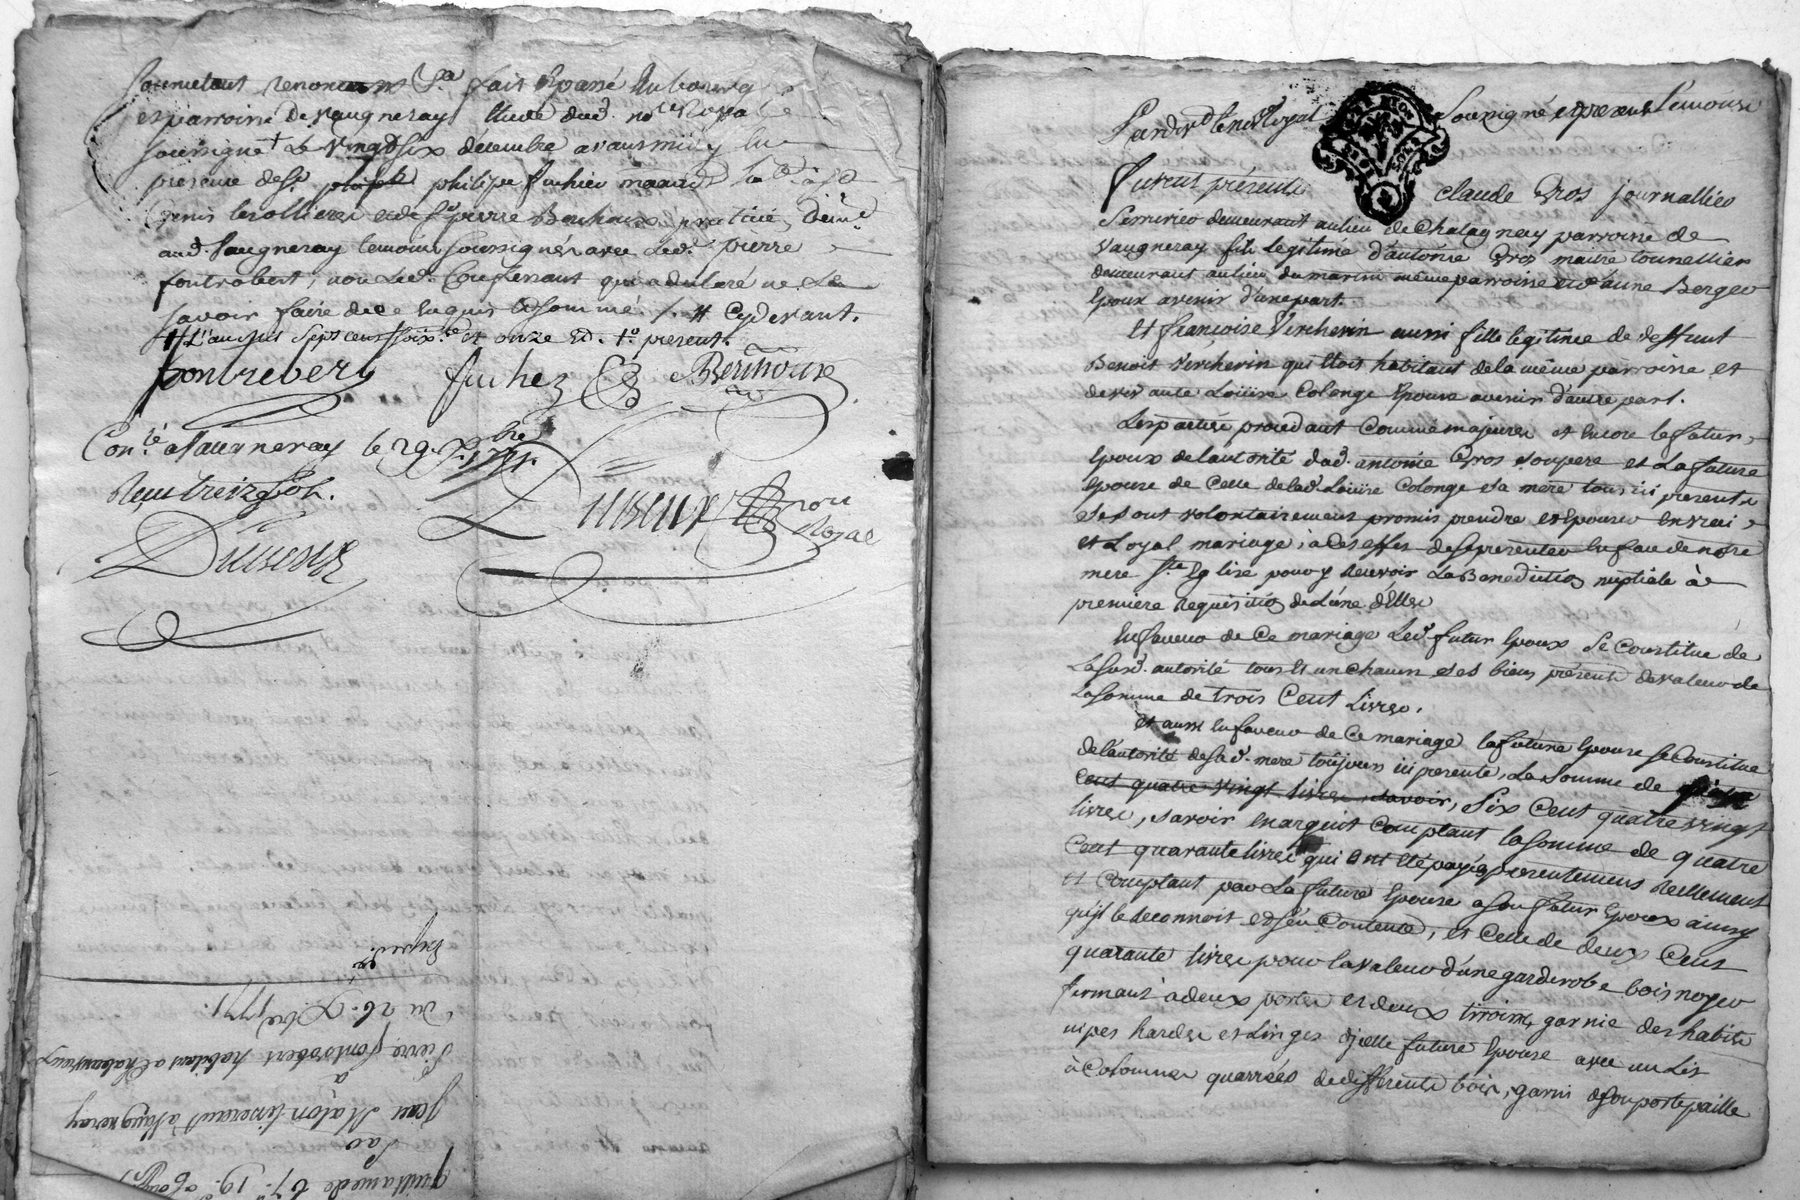 soumettant renoncant &a. fait & passé au bourg
et parroisse de vaugneray Etude dud. nore Royal
soussigné + Le vingt six décembre avant midy En
presence de sr. philipe fuchez
de sr pierre Benhoux praticien demt.
aud. vaugneray temoins soussignés avec Led. pierre
fontrobert, non Led. Couplenant qui a déclaré ne Le
savoir faire de ce Enquis & sommé ./. # Cydevant.
# L'an mil sept cent soixte. et onze
fontrobert fuchez Benhoux
Conlé a Vaugneray le 29. xbre 1771.
Reçu treize sols.
nore
Royal
Expédié.
Du 26. Xbre 1771.
Pierre fontrobert habitant a
à
Jean a Vaugneray
par
quittance de 67.# 19.s
Pardt le nore Royal soussigné et presents temoins
furent présents Claude Gros journallier
demeurant au lieu de Chalagnay parroisse de
vaugneray fils legitime d'antoine Gros maitre tonnellier
demeurant au lieu du martin même parroisse et d'anne Berger
Epoux avenir d'une part.
Et françoise Vercherin aussi fille legitime de deffunt
Benoit Vercherin qui Etoit habitant de la même parroisse et
de vivante Louise Colonge Epouse avenir d'autre part.
Les parties procedant comme majeures et encore le futur
Epoux de lautorité dud. antoine Gros son pere et La future
Epouse de Celle de lad. Louise Colonge sa mere tous ici presents
se sont volontairement promis prendre et Epouser en vrai
et Loyal mariage, a Cés effet de se presenter En face de notre
mere ste. Eglise pour y recevoir La Benediction nuptiale à
premiere requisition de L'une d'Elles
En faveur de Ce mariage Led. futur Epoux se Constitue de
La susd. autorité tous Et un chacun ses biens présents de valeur de
La somme de trois Cent Livres.
Et aussi En faveur de Ce mariage la future Epouse se Constitue
de l'autorité de sad. mere toujours ici presente, La somme de
Cent quatre vingt livres, savoir, Six Cent quatre vingt
livres, savoir en argent Comptant la somme de quatre
Cent quarante livres qui ont été payés presentement reellement
Et Comptant par La future Epouse a son futur Epoux ainsy
qu'il le reconnoit et s'en Contente, et Celle de deux Cent
quarante livres pour la valeur d'une garderobe bois noyer
fermant a deux portes et deux tiroirs, garnie des habits
nipes hardes et Linges d'icelle future Epouse avec un Lit
à Colomnes quarrées de differents bois, garni de son portepaille